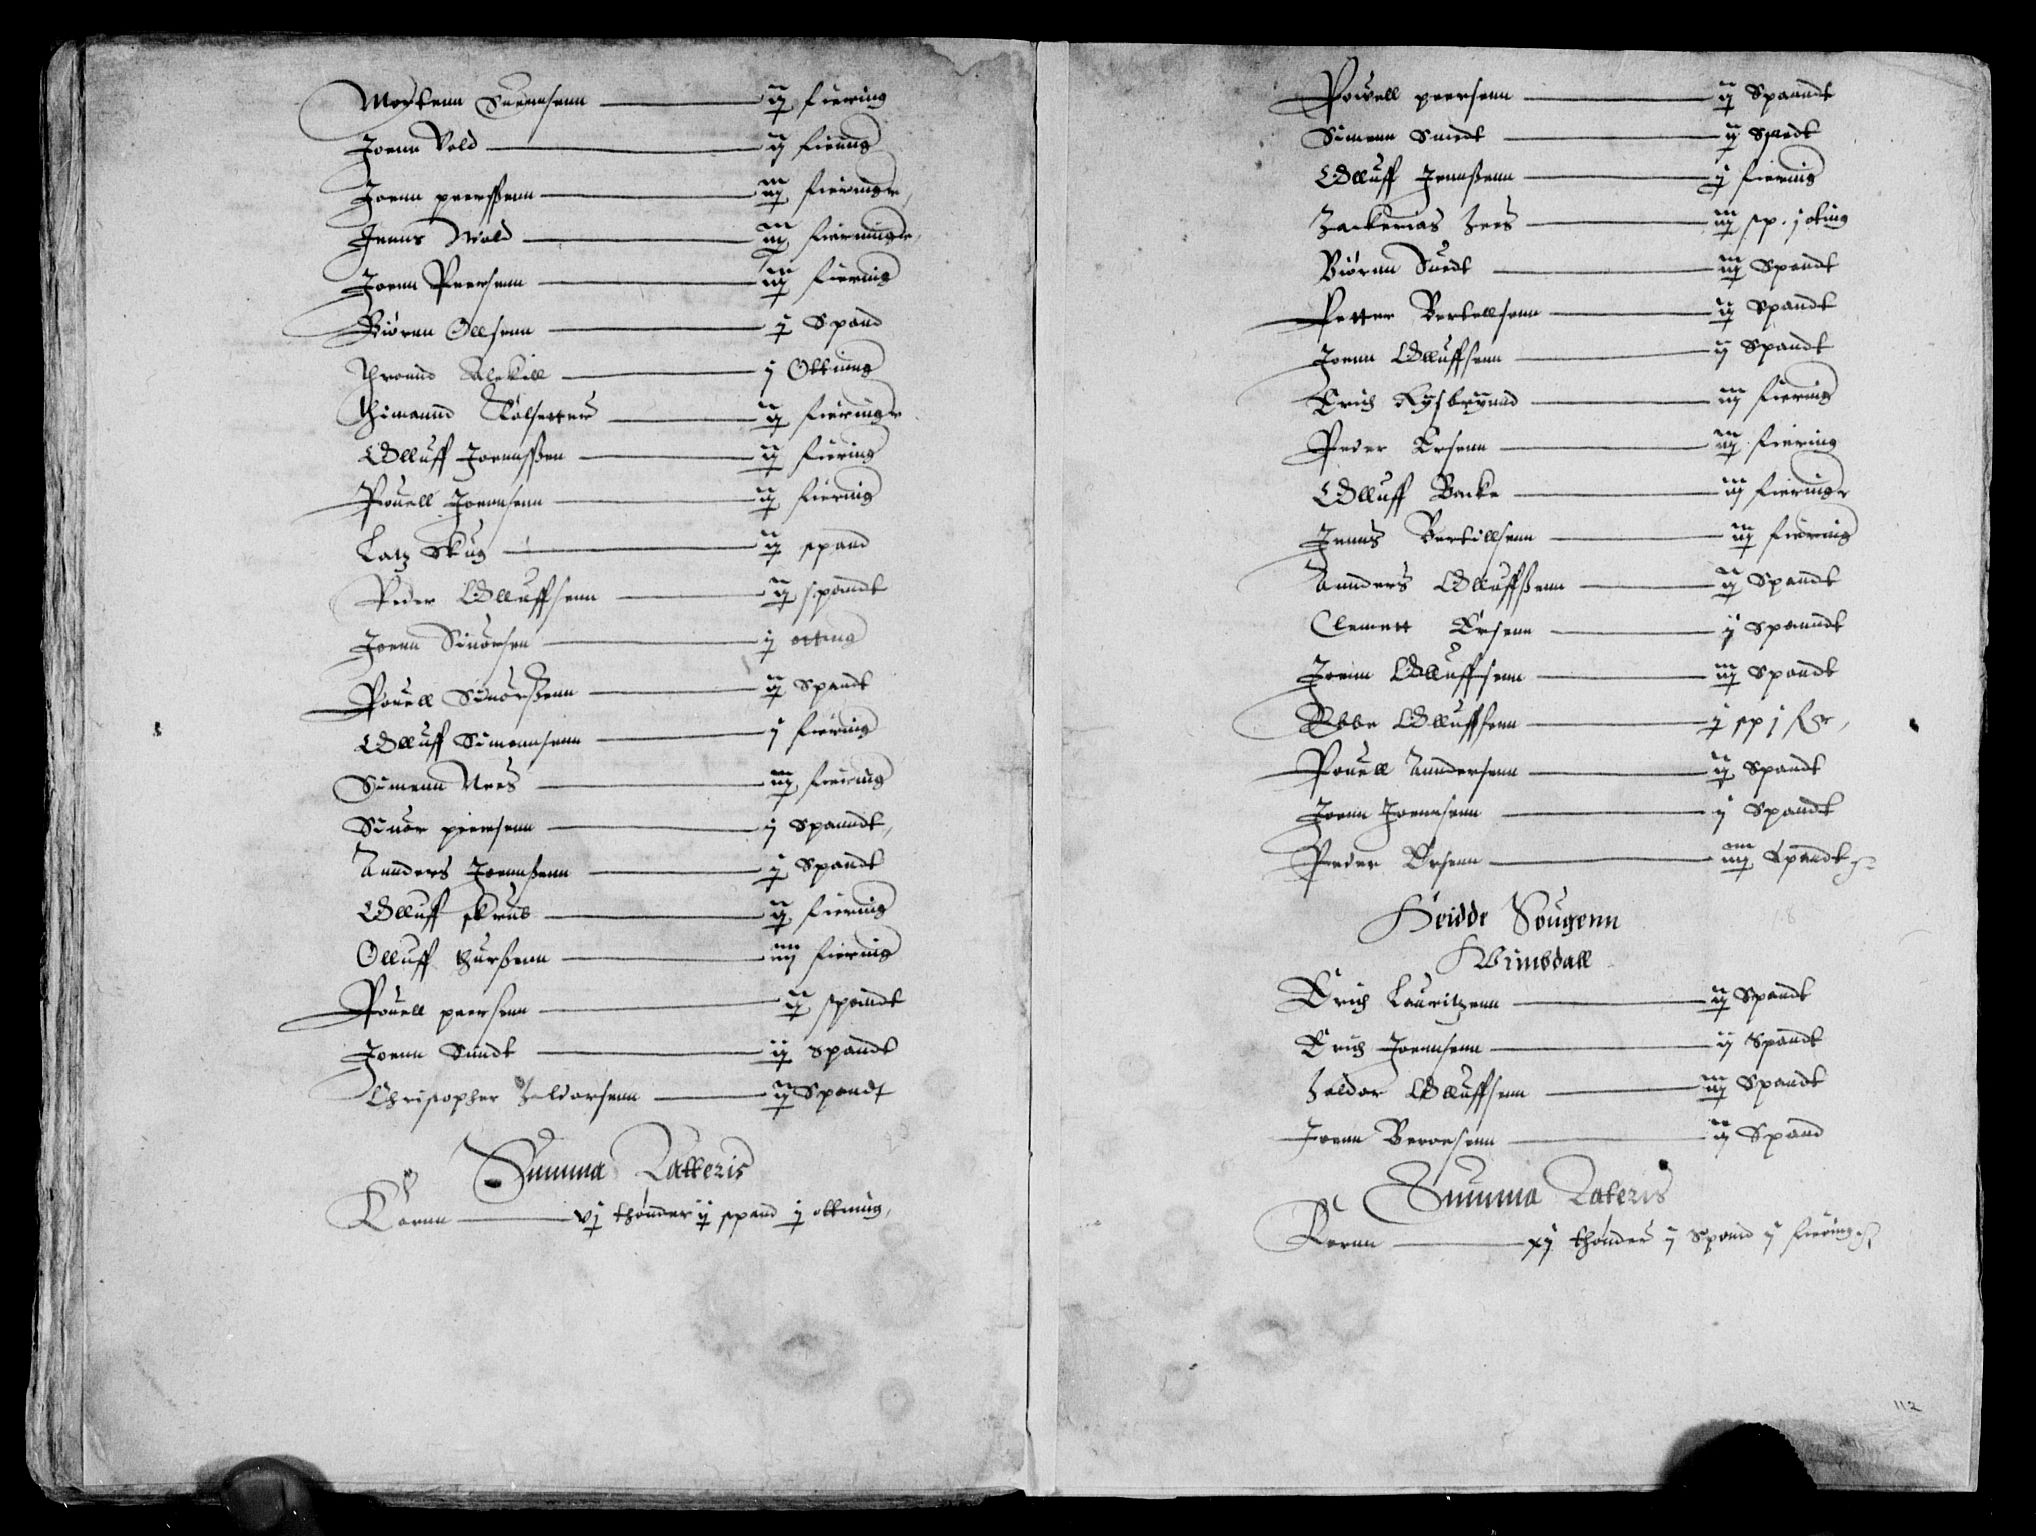 Mortenn Suennsenn — ij fiering
Joenn Vold — ij fiering
Joenn peerssenn — iij fieringe,
Jenns Wold — iij fieringe,
Joenn Peersenn — iij fiering
Biörnn Ollsenn — j Spand
Thronnd — j Ottinng
Thimannd Kölsetter — ij fieringe
Olluff Joennssen — ij fiering
Pouell Joennsenn — ij fiering
Latz Skug — ij spand
Peder Olluffsenn — ij spandt
Joenn Siuorsen — j otting
Pouell Siuorssenn — ij Spandt
Olluff Simennsenn — j fiering
Simenn Nees — iij fiering
Siuor peersenn — j Spanndt,
Annders Joennssenn — j Spandt
Olluff skrub — ij fiering
Olluff thurssenn — iiij fiering
Pouell peersenn — ij spandt
Joenn Sundt — ij Spandt
Christopher Haldorsenn — ij Spendt
Summa Latteris
Kornn — vj thønder ij spand j ottinng,
Powell peersenn — ij Spanndt
Simenn Smedt — ij Spedt
Olluff Jennssenn — j fiering
Zackerias Nees — iij sp. j oting
Biörnn Suedt — iij Spandt
Petter Bertellsenn — ij Spandt
Joenn Olluffsenn — ij Spandt
Erich Rysbrynnd — iij fiering
Peder Ersenn — iij fiering
Olluff Backe — iij fieringe
Jenns Bertillsenn — iij fiering
Annders Olluffssenn — ij Spandt
Clemett Ersenn — j Spanndt
Joenn Olluffsenn — iij Spandt
Ebbe Olluffsenn — j sp j fr,
Pouell Anndersenn — ij Spandt
Joenn Joennsenn — j Spandt
Peder Ersenn — iiij Spandt
Heidde Sougenn
Wimsdall
Erich Lauritzenn — ij Spandt
Erich Joennsenn — ij Spandt
Haldor Olluffsenn — iij Spandt
Joenn Beroesenn — ij Spand
Summa Lateris
Kornn — xj thønder j Spand j fiering
112